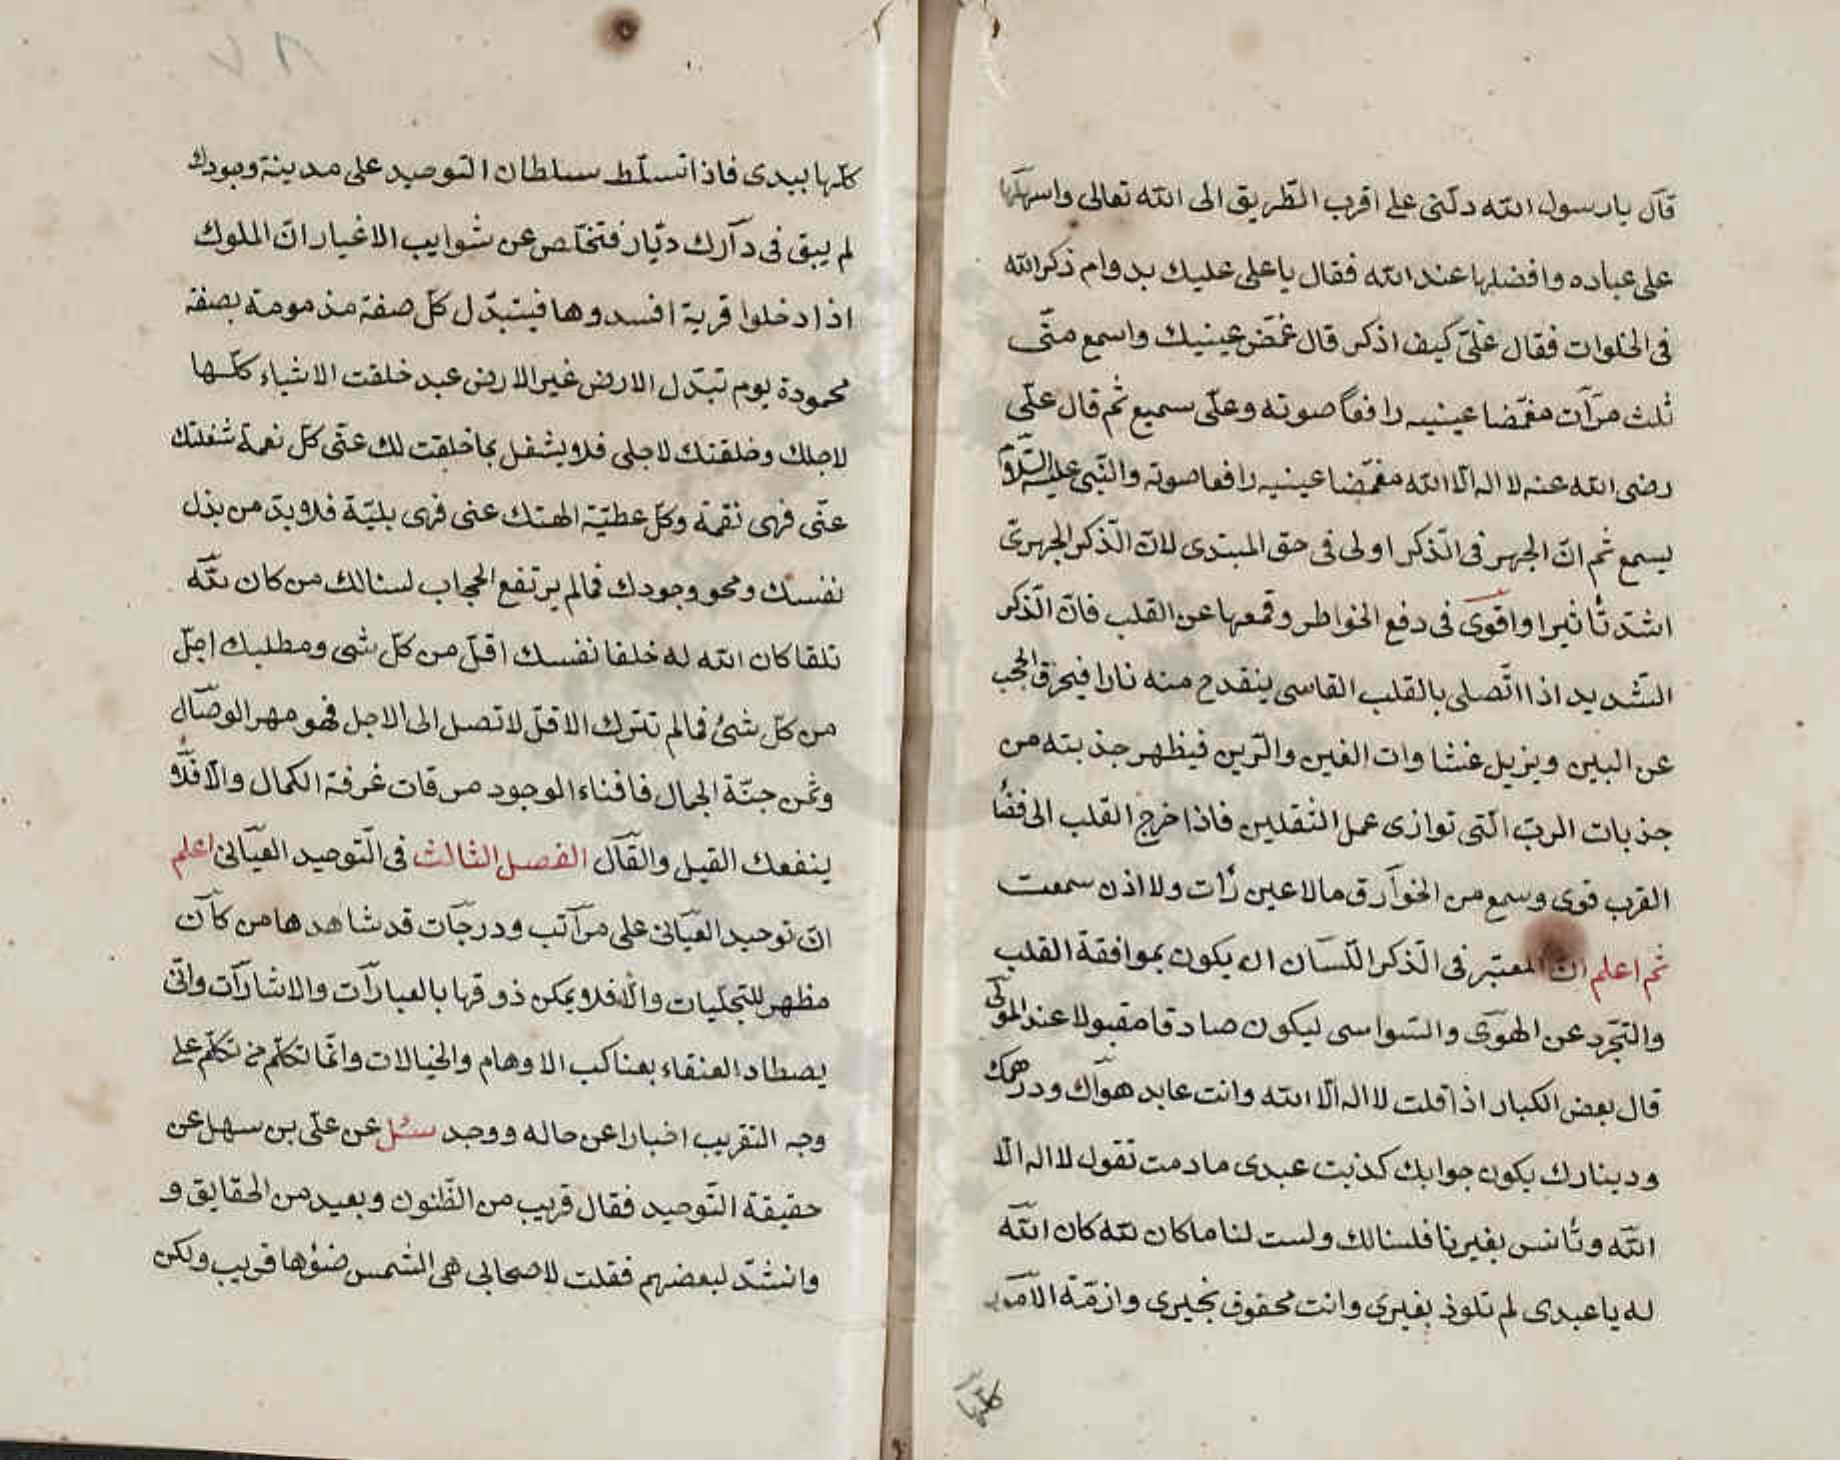 قال يا رسول الله دلّنى على اقرب الطّريق الى الله تعالى واسهلها
على عباده وافضلها عند الله فقال يا على عليك بدوام ذكر الله
فى الخلوات فقال علىّ كيف اذكر قال غمّض عينيك واسمع منّى
ثلث مرّات مغمّضا عينيه رافعا صوته وعلّى سميع ثم قال علّى
رضى الله عنه لا اله الا الله مغمّضا عينيه رافعا صوته والنّبى عليه السّلام
يسمع ثم انّ الجهر فى الذّكر اولى فى حق المبتدى لانّ الذّكر الجهرىّ
اشدّ تأثيرا واقوى فى دفع الخواطر وقمعها عن القلب فانّ الذّكر
الشّديد اذا اتّصلى بالقلب القاسى ينقدح منه نارا فيحرق الحجب
عن البين ويزيل غشاوات الغين والرّين فيظهر جذبته من
جذبات الربّ الّتى توازى عمل الثّقلين فاذا خرج القلب الى فضاء
القرب قوى وسمع من الخوارق مالا عين رأت ولا اذن سمعت
ثم اعلم انّ المعتبر فى الذّكر اللّسان ان يكون بموافقة القلب
والتّجرّد عن الهوى والسّواسى ليكون صادقا مقبولا عند المولى
قال بعض الكبار اذا قلت لا اله الّا الله وانت عابد هواك ودرهمك
ودينارك يكون جوابك كذبت عبدى مادمت تقول لا اله الّا
الله وتأنس بغيرنا فلسنا لك ولست لنا ما كان لله كان الله
له يا عبدى لم تلوذ بغيرى وانت محفوف بخيرى وازمّة الامور
كلّها
كلّها بيدى فاذا تسلّط سلطان التوحيد على مدينة وجودك
لم يبق فى دارك ديّار فتخلّص عن شوايب الاغيار انّ الملوك
اذا دخلوا قرية افسدوها فيتبدّل كلّ صفة مذمومة بصفة
محمودة يوم تبدّل الارض غير الارض عبد خلقت الاشياء كلّها
لاجلك وخلقتك لاجلى فلا يشغل بما خلقت لك عنّى كلّ نعمة شغلتك
عنّى فهى نقمة وكلّ عطيّة الهتك عنى فهى بليّة فلا بدّ من بذل
نفسك ومحو وجودك فمالم يرتفع الحجاب لسنالك من كان لله
تلفا كان الله له خلفا نفسك اقلّ من كلّ شى ومطلبك اجلّ
من كلّ شئ فمالم تترك الاقلّ لا تصل الى الاجل فهو مهر الوصال
وثمن جنّة الجمال فافناء الوجود مرقات غرفة الكمال والّا فلا
ينفعك القيل والقال الفصل الثالث فى التّوحيد العيّانى اعلم
انّ توحيد العيّانى على مراتب ودرجات قد شاهدها من كان
مظهر للتجلّيات والّا فلا يمكن ذوقها بالعبارات والاشارات وانّى
يصطاد العنقاء بعناكب الاوهام والخيالات وانّما تكلّم من تكلّم على
وجه التقريب اخبارا عن حاله ووجد سئل عن علّى بن سهل عن
حقيقة التّوحيد فقال قريب من الظّنون وبعيد من الحقايق و
وانشدّ لبعضهم فقلت لاصحابى هى الشّمس ضؤها قريب ولكن